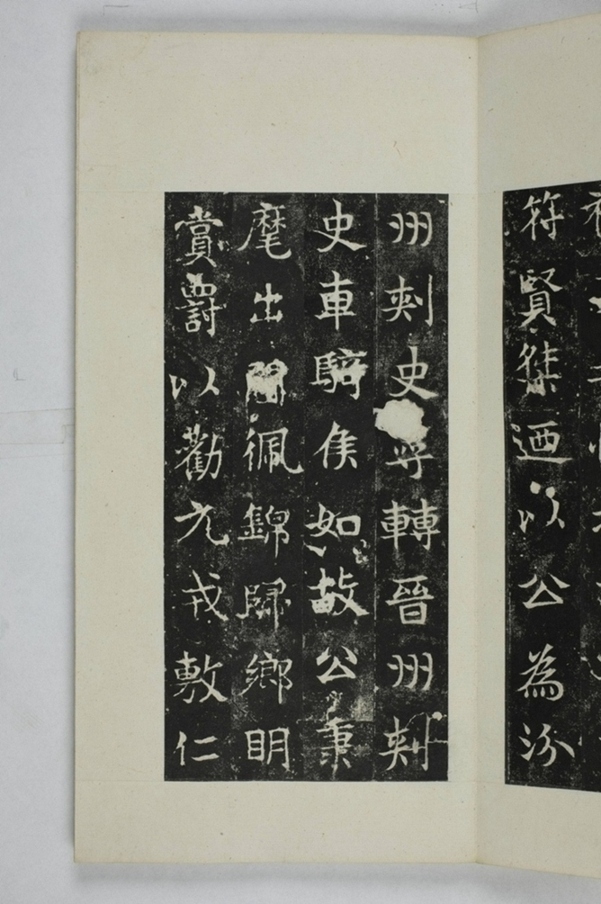 符賢桀迺以公為汾
州刺史尋轉晉州刺
史車騎侯如故公秉
麾出閫佩錦歸鄉明
賞罸以勸元戎敷仁